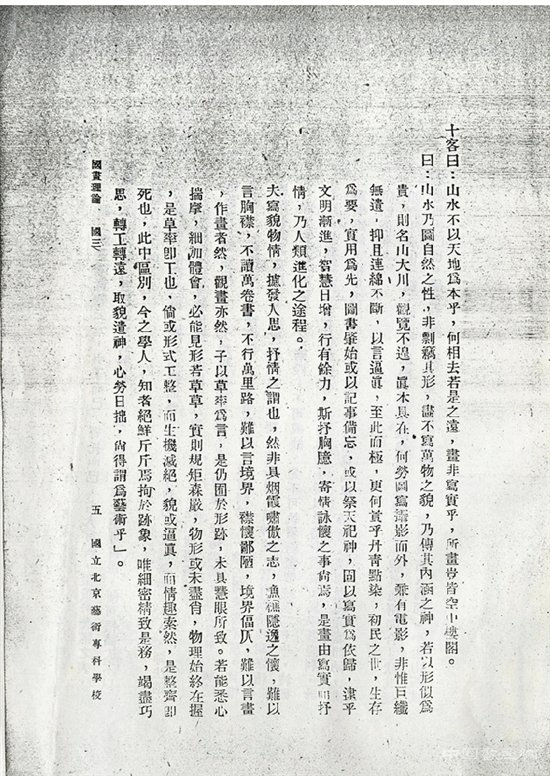 十客曰：山水不以天地為本乎，何相去若是之遠，畫非寫實乎，所畫豈皆空中樓閣。
曰：山水乃圖自然之性，非剽竊其形，畫不寫萬物之貌，乃傳其內涵之神，若以形似為
貴，則名山大川，觀覽不遑，真本具在，何勞圖寫攝影而外，兼有電影，非惟巨纖
無遺，抑且連綿不斷，以言逼真，至此而極，更何貴乎丹青點染，初民之世，生存
為要，實用為先，圖書肇始或以記事備忘，或以祭天祀神，固以寫實為依歸，逮乎
文明漸進，智慧日增，行有餘力，斯抒胸臆，寄情詠懷之事尚焉，是畫由寫實而抒
情，乃人類進化之途程。
夫寫貌物情，攄發人思，抒情之謂也，然非具烟霞嘯傲之志，漁樵隱逸之懷，難以
言胸襟，不讀萬卷書，不行萬里路，難以言境界，襟懷鄙陋，境界偪仄，難以言畫
，作畫者然，觀畫亦然，子以草率為言，是仍囿於形跡，未具慧眼所致。若能悉心
揣摩，細加體會，必能見形若草草，實則規矩森嚴，物形或未盡肖，物理始終在握
，是草率即工也，倘或形式工整，而生機滅絕，貌或逼真，而情趣索然，是整齊即
死也，此中區別，今之學人，知者絕鮮斤斤焉拘於跡象，唯細密精致是務，竭盡巧
思，轉工轉遠，取貌遺神，心勞日拙，尚得謂為藝術乎」。
國畫理論 國三 五 國立北京藝術專科學校